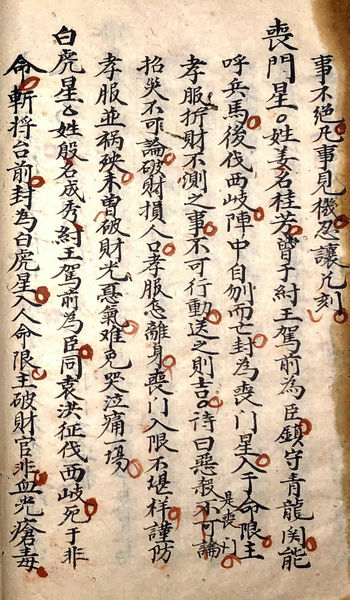 事不絕凡事見機忍讓兑刻
喪門星姓姜名桂芳曾于紂王駕前為臣鎮守青龍関能
呼兵馬後伐西岐陣中自刎而亡封為喪門星入于命限主
孝服折財不測之事不可行動送之則吉詩曰惡殺是喪門不可論
招災不可論破財損人口孝服忌離身喪門入限不堪祥謹防
孝服並禍殃未曾破財光惡氣难免哭泣痛一場
白虎星姓殷名成秀紂王駕前為臣同袁洪征伐西岐死于非
命斬将台前封為白虎星入人命限主破財官非血光瘡毒